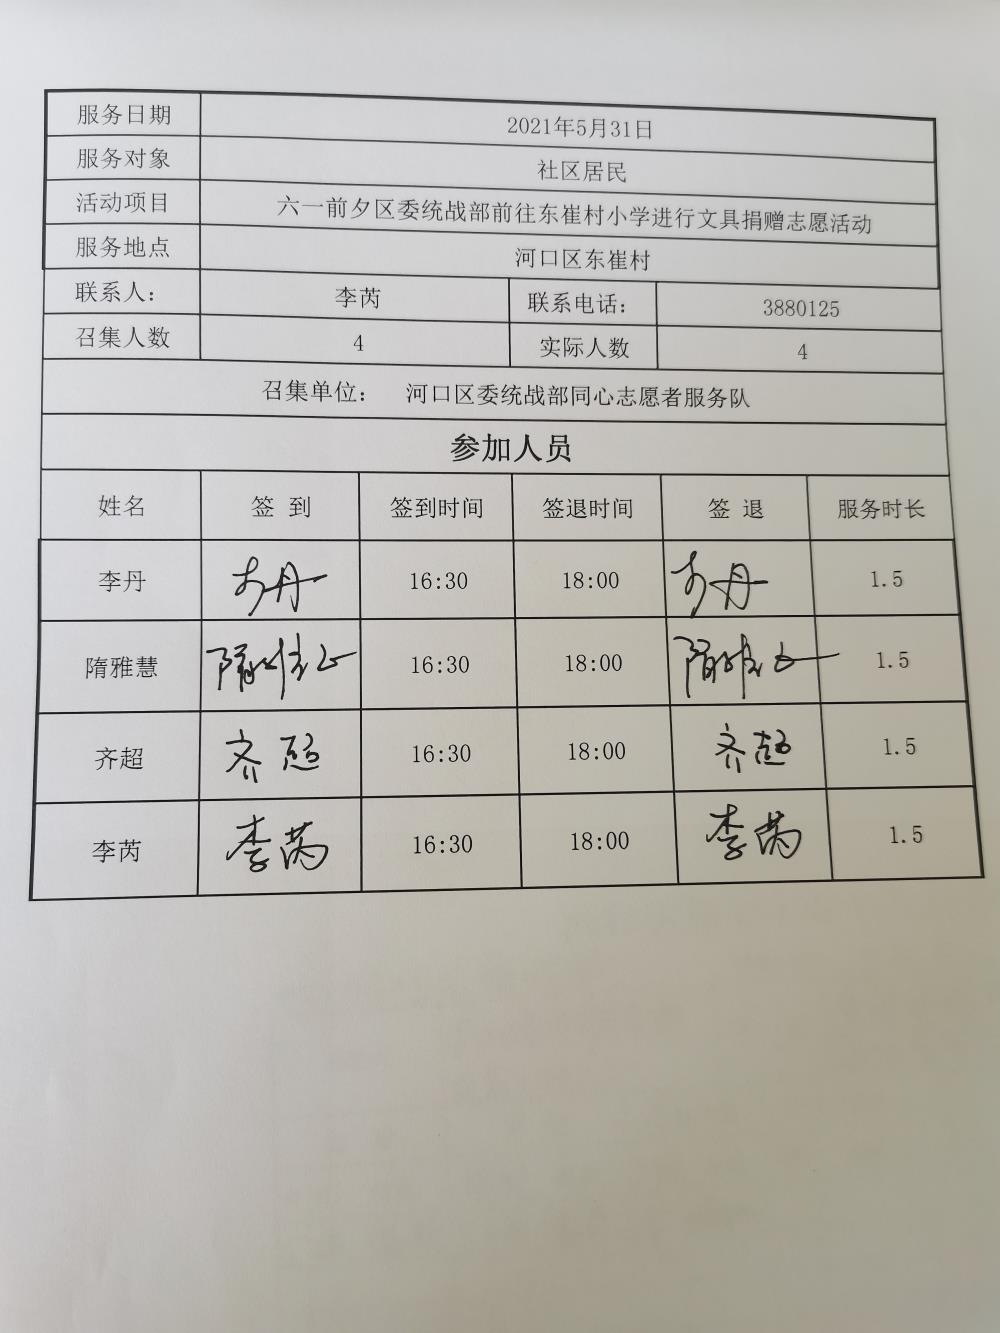 服务日期 2021年5月31日
服务对象 社区居民
活动项目 六一前夕区委统战部前往东崔村小学进行文具捐赠志愿活动
服务地点 河口区东崔村
联系人： 李芮 联系电话： 3880125
召集人数 4 实际人数 4
召集单位： 河口区委统战部同心志愿者服务队
参加人员
姓名 签 到 签到时间 签退时间 签 退 服务时长
李丹 李丹 16:30 18:00 李丹 1.5
隋雅慧 隋雅慧 16:30 18:00 隋雅慧 1.5
齐超 齐超 16:30 18:00 齐超 1.5
李芮 李芮 16:30 18:00 李芮 1.5